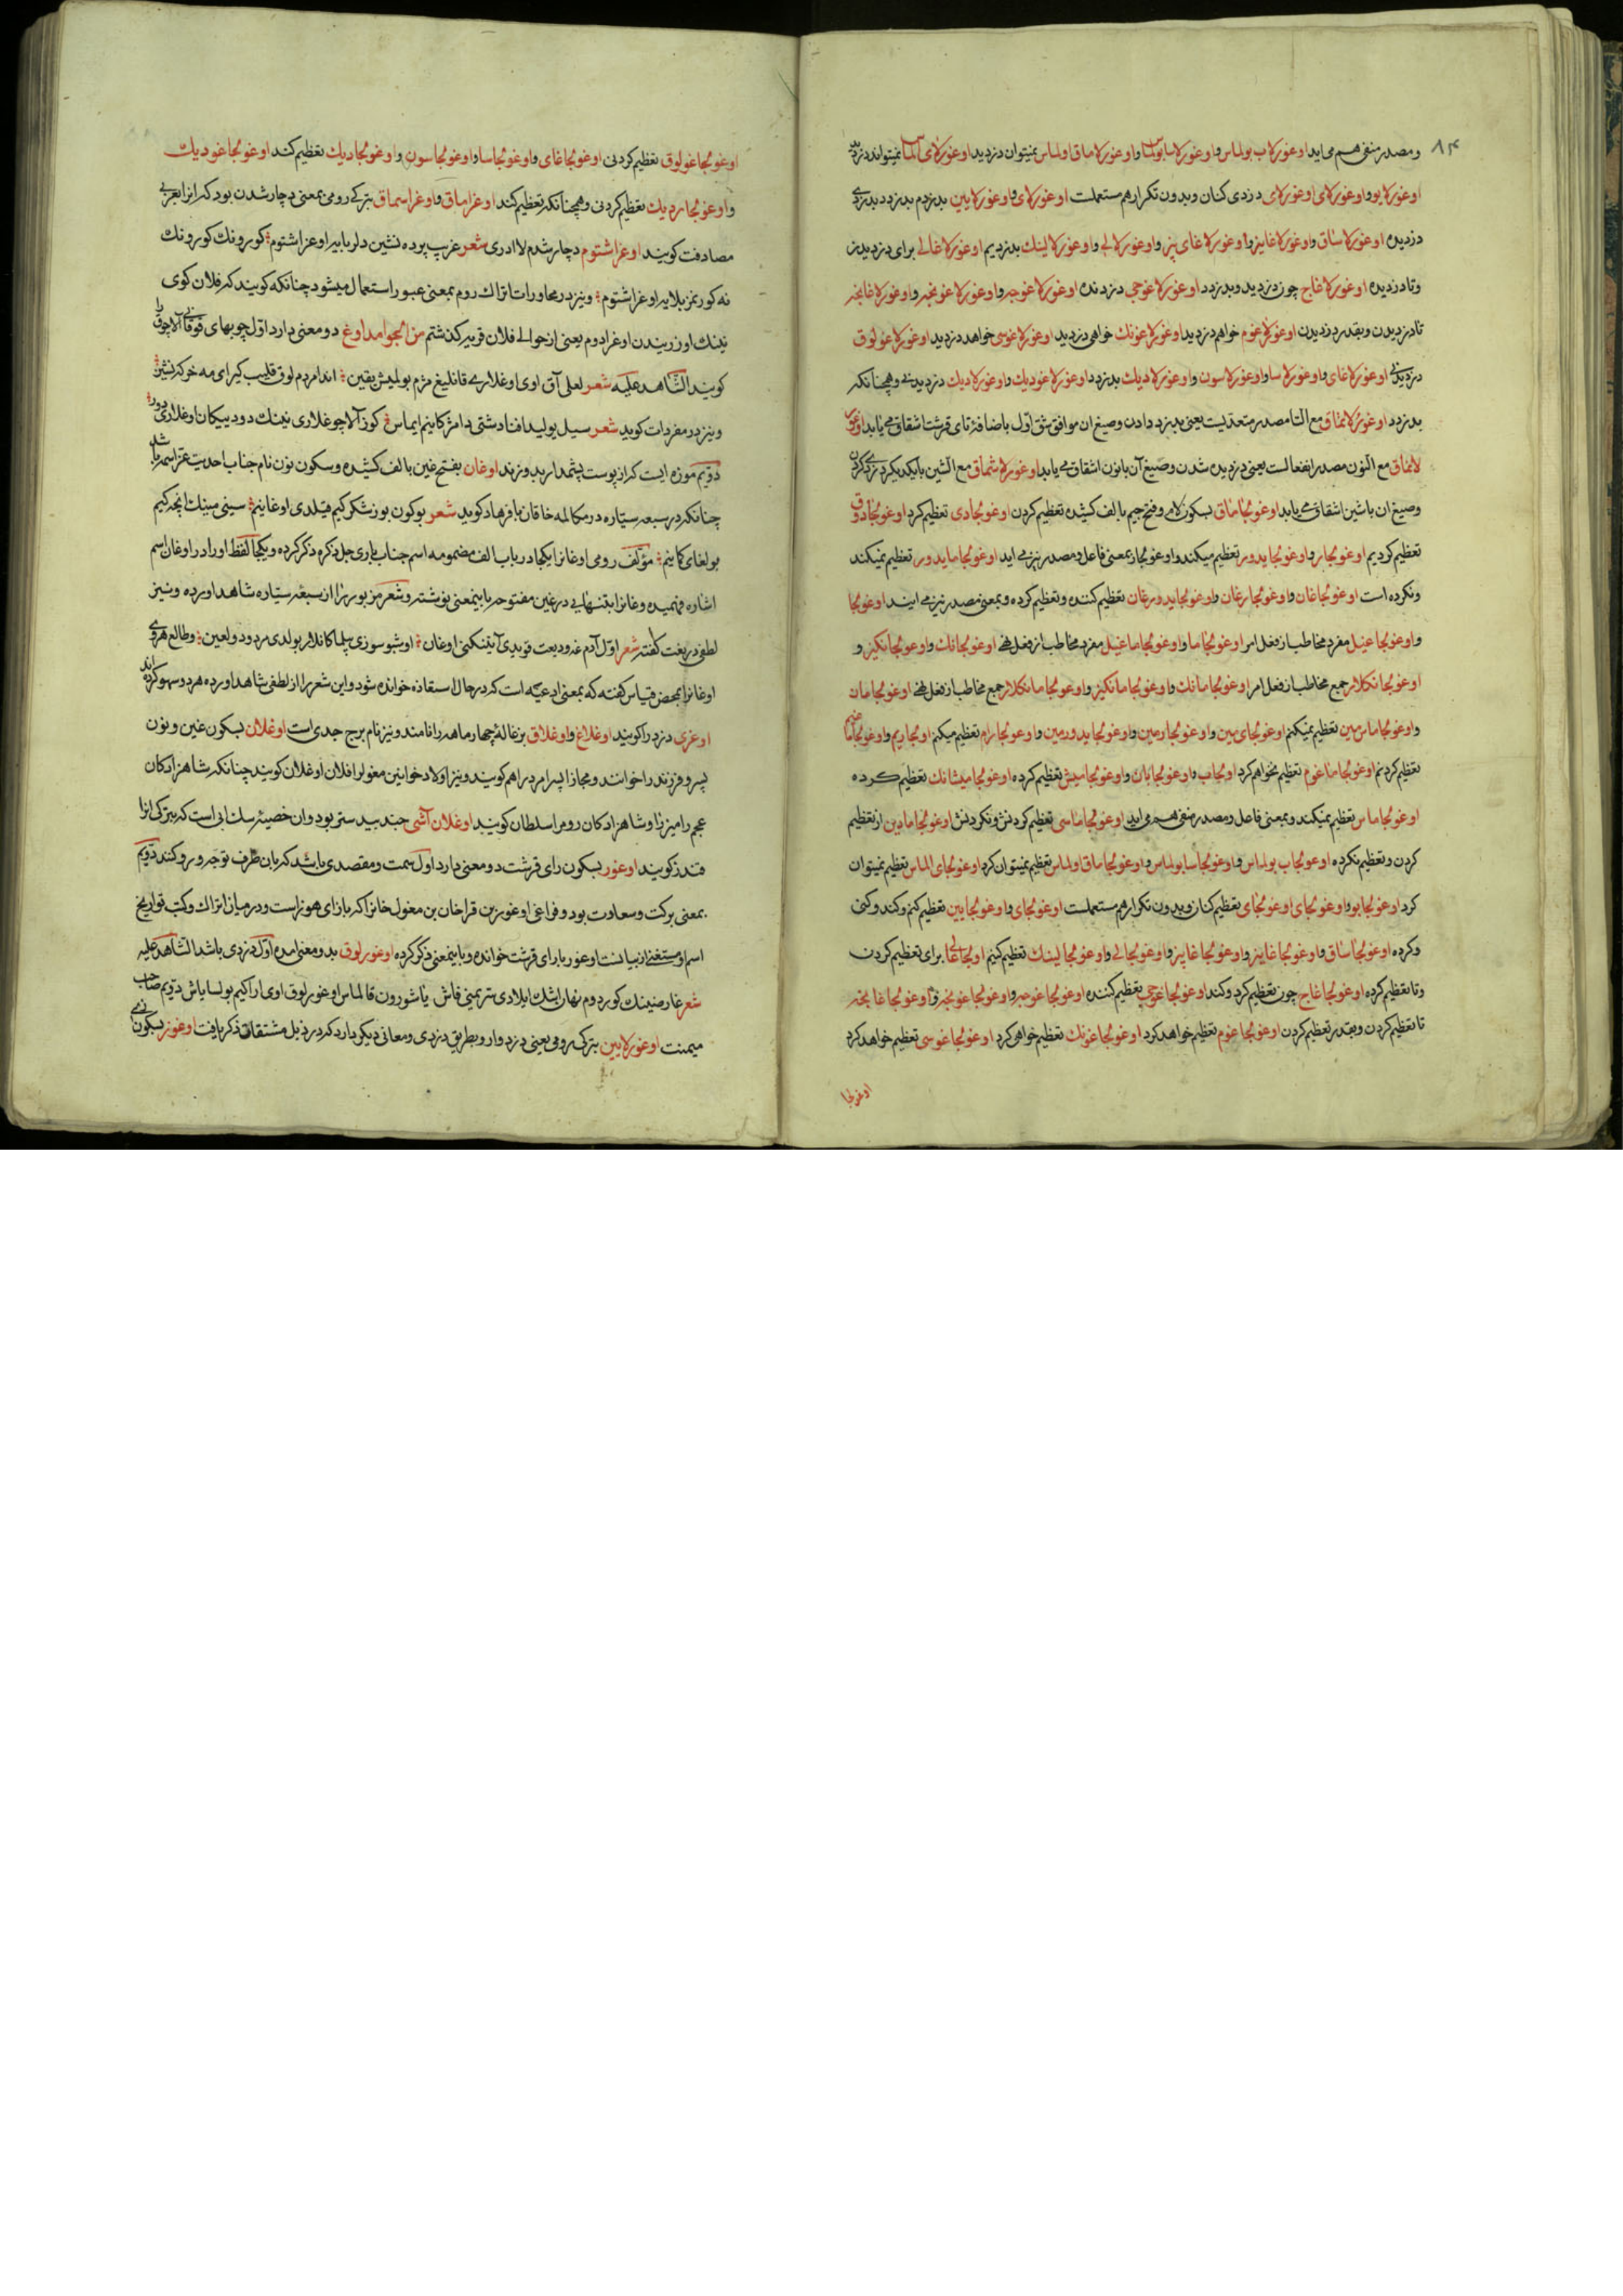 ٨٣
ومصدر منفی هم می‌اید اوغورلاب بولماس و اوغورلاسا بولماس و اوغورلاماق اولماس نمیتوان دزدید اوغورلای الماس نمیتواند دزدید
اوغورلابو و اوغورلای اوغورلای دزدی کنان وبدون تکرار هم مستعملست اوغورلای و اوغورلایین بدزدم بدزدد بدزدی
دزدیده اوغورلاساق و اوغورلاغایز و اوغورلاغای بز و اوغورلالی و اوغورلالینک بدزدیم اوغورلاغالی برای دزدیدن
وتا دزدیده اوغورلاغاج چون دزدید وبدزدد اوغورلاغوجی دزدنده اوغورلاغوجه و اوغورلاغونجه و اوغورلاغانجه
تا دزدیدن وبقدر دزدیدن اوغورلاغوم خواهم دزدید اوغورلاغونک خواهی دزدید اوغورلاغوسی خواهد دزدید اوغورلاغولوق
دزدیدنی اوغورلاغای و اوغورلاسا و اوغورلاسون و اوغورلادیک بدزدد اوغورلاغودیک و اوغورلادیک دزدیدنی وهمچنانکه
بدزدد اوغورلاتماق مع التا مصدر متعدیست یعنی بدزد دادن وصیغ ان موافق شق اول باضافهٔ تای قرشت اشقاق می یابد اوغور
لانماق مع النون مصدر انفعالست یعنی دزدیده شدن وصیغ آن بانون اشقاق می یابد اوغورلاشماق مع الشین بایکدیکر دزدی کردن
وصیغ ان باشین اشقاق می یابد اوغولجاماق بسکون لام وفتح جیم بالف کشیده تعظیم کردن اوغولجادی تعظیم کرد اوغولجادوق
تعظیم کردیم اوغولجار و اوغولجایدور تعظیم میکند و اوغولجار بمعنی فاعل ومصدر نیز می اید اوغولجامایدور تعظیم نمیکند
ونکرده است اوغولجاغان و اوغولجارغان و اوغولجایدورغان تعظیم کننده وتعظیم کرده وبمعنی مصدر نیز می ایند اوغولجا
و اوغولجاغیل مفرد مخاطب از فعل امر اوغولجاما و اوغولجاماغیل مفرد مخاطب از فعل نهی اوغولجانک و اوغولجانکیز و
اوغولجانکلار جمع مخاطب از فعل امر اوغولجامانک و اوغولجامانکیز و اوغولجامانکلار جمع مخاطب از فعل نهی اوغولجامان
و اوغولجاماس مین تعظیم نمیکنم اوغولجای مین و اوغولجارمین و اوغولجایدورمین و اوغولجارام تعظیم میکنم اوغولجادیم و اوغولجاما
تعظیم کردنم اوغولجاماغوم تعظیم نخواهم کرد اوغولجاب و اوغولجابان و اوغولجامیش تعظیم کرده اوغولجامیشانک تعظیم کرده
اوغولجاماس تعظیم نمیکند وبمعنی فاعل ومصدر منفی هم می اید اوغولجاماسی تعظیم کردنش ونکردنش اوغولجامادین از تعظیم
کردن وتعظیم نکرده اوغولجاب بولماس و اوغولجاسا بولماس و اوغولجاماق اولماس تعظیم نمیتوان کرد اوغولجای الماس تعظیم نمیتوان
کرد اوغولجابو و اوغولجای اوغولجای تعظیم کنان وبدون تکرار هم مستعملست اوغولجای و اوغولجایین تعظیم کنم وکند وکنی
وکرده اوغولجاساق و اوغولجاغایز و اوغولجاغایبز و اوغولجالی و اوغولجالینک تعظیم کنیم اوغولجاغالی برای تعظیم کردن
وتا تعظیم کرده اوغولجاغاج چون تعظیم کرد وکند اوغولجاغوجی تعظیم کننده اوغولجاغوجه و اوغولجاغونجه و اوغولجاغانجه
تا تعظیم کردن وبقدر تعظیم کردن اوغولجاغوم تعظیم خواهد کرد اوغولجاغونک تعظیم خواهی کرد اوغولجاغوسی تعظیم خواهد کرد
اوغولجا
اوغولجاغولوق تعظیم کردنی اوغولجاغای و اوغولجاسا و اوغولجاسون و اوغولجادیک تعظیم کند اوغولجاغودیک
و اوغولجاردیک تعظیم کردنی وهمچنانکه تعظیم کند اوغراماق و اوغراشماق بترکی رومی بمعنی دچار شدن بود که انرا بعربی
مصادفت کویند اوغراشتوم دچار شدم لاادری شعر غرب پرده نشین دلربایه اوغراشتوم کورونک کورونک
نه کورنمز بلایه اوغراشتوم ونیز در محاورات اتراک روم بمعنی عبور استعمال میشود چنانکه کویند که فلان کوی
نینک اوزریندن اوغرادوم یعنی از حوالی فلان قریه کذشتم من الجوامد اوغ دو معنی دارد اول چوبهای فوقانی آلاچوق را
کویند الشاهد علیه شعر لعلی آق اوی اوغلاری قانلیغ مژم بولمیش یقین اندا مردم لوق قلیب کیرای مه خرکه نشین
ونیز در مفردات کوید شعر سیل بولید افنادشتی دا مژکانیم ایماس کوز آلاچوغلاری نینک دود پیکان اوغلاری دور
دویم موزه ایست که از پوست پشمدار بدوزند اوغان بفتح غین بالف کشیده وسکون نون نام جناب احدیت عز اسمه باشد
چنانکه در سبعه سیاره در مکالمه خاقان با فرهاد کوید شعر بوکون بوز شکر کیم قیلدی اوغانیم سینی مینک انجه کیم
بولغای کمانیم مؤلف رومی اوغانرا یکجا در باب الف مضمومه اسم جناب باری جل ذکره ذکر کرده ویکجا لفظ اورا در اوغان اسم
اشاره فهمیده وغانرا بتنهایی در غین مفتوحه باینمعنی نوشته وشعر مزبور را از سبعه سیاره شاهد اورده ونیز
لطفی در بغت کفته شعر اول آدم غه ودیعت قویدی آینکنی اوغان اوشبو سوزی پیلماکانلار بولدی مردود ولعین وطالع هروی
اوغانرا بمحض قیاس کفته که بمعنی ادعیّه است که در حال استغاثه خوانده شود واین شعر را از لطفی شاهد اورده هر دو سهو کرده اند
اوغری دزد را کویند اوغلاغ و اوغلاق بزغالهٔ چهار ماهه را نامند ونیز نام برج جدی است اوغلان بسکون غین ونون
پسر وفرزند را خوانند ومجازا پسر امرد را هم کویند ونیز اولاد خوانین مغول را فلان اوغلان کویند چنانکه شاهزادکان
عجم را میرزا وشاهزادکان روم را سلطان کویند اوغلان آشی جند بیدستر بود وان خصیهٔ سک ابی است که بترکی انرا
قندز کویند اوغور بسکون رای قرشت دو معنی دارد اول سمت ومقصدی باشد که بان طرف توجه ورو کنند دویم
بمعنی برکت وسعادت بود وفراغی اوغوز بن قراخان بن مغول خانرا که بازای هوز است ودر میان اتراک وکتب تواریخ
اسم او مستغنی از بیانست اوغور بارای قرشت خوانده وباینمعنی ذکر کرده اوغورلوق بدو معنی امده اول دزدی باشد الشاهد علیه
شعر عارضینک کوردوم نهان اشک ایلادی سرمنی فاش یاشورون قالماس اوغورلوق اوی ارا کیم بولسا یاش دویم صاحب
میمنت اوغورلایین بترک رومی یعنی دزدوار وبطریق دزدی ومعانی دیکر دارد که در ذیل مشتقات ذکر یافت اوغوز بسکون زای